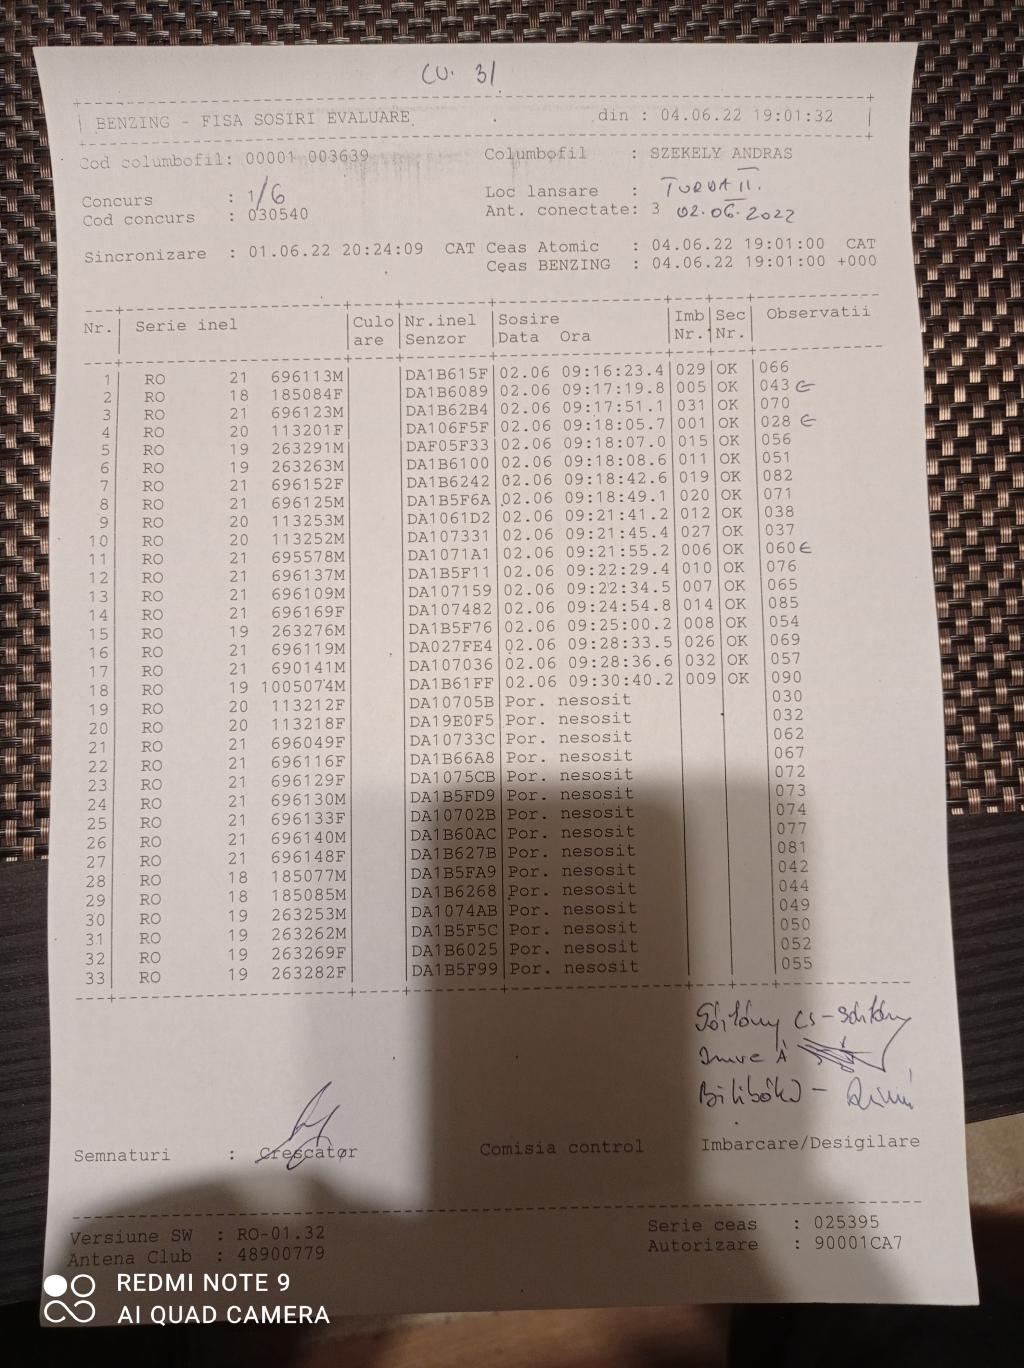 CU. 31
BENZING - FISA SOSIRI EVALUARE din : 04.06.22 19:01:32
Cod columbofil: 00001 003639 Columbofil : SZEKELY ANDRAS
Concurs : 1/6 Loc lansare : TURDA II.
Cod concurs : 030540 Ant. conectate: 3 02.06.2022
Sincronizare : 01.06.22 20:24:09 CAT Ceas Atomic : 04.06.22 19:01:00 CAT
Ceas BENZING : 04.06.22 19:01:00 +000
Nr. Serie inel Culo Nr.inel Sosire Imb Sec Observatii
are Senzor Data Ora Nr. Nr.
1 RO 21 696113M DA1B615F 02.06 09:16:23.4 029 OK 066
2 RO 18 185084F DA1B6089 02.06 09:17:19.8 005 OK 043 €
3 RO 21 696123M DA1B62B4 02.06 09:17:51.1 031 OK 070
4 RO 20 113201F DA106F5F 02.06 09:18:05.7 001 OK 028 €
5 RO 19 263291M DAF05F33 02.06 09:18:07.0 015 OK 056
6 RO 19 263263M DA1B6100 02.06 09:18:08.6 011 OK 051
7 RO 21 696152F DA1B6242 02.06 09:18:42.6 019 OK 082
8 RO 21 696125M DA1B5F6A 02.06 09:18:49.1 020 OK 071
9 RO 20 113253M DA1061D2 02.06 09:21:41.2 012 OK 038
10 RO 20 113252M DA107331 02.06 09:21:45.4 027 OK 037
11 RO 21 695578M DA1071A1 02.06 09:21:55.2 006 OK 060 €
12 RO 21 696137M DA1B5F11 02.06 09:22:29.4 010 OK 076
13 RO 21 696109M DA107159 02.06 09:22:34.5 007 OK 065
14 RO 21 696169F DA107482 02.06 09:24:54.8 014 OK 085
15 RO 19 263276M DA1B5F76 02.06 09:25:00.2 008 OK 054
16 RO 21 696119M DA027FE4 02.06 09:28:33.5 026 OK 069
17 RO 21 690141M DA107036 02.06 09:28:36.6 032 OK 057
18 RO 19 1005074M DA1B61FF 02.06 09:30:40.2 009 OK 090
19 RO 20 113212F DA10705B Por. nesosit 030
20 RO 20 113218F DA19E0F5 Por. nesosit 032
21 RO 21 696049F DA10733C Por. nesosit 062
22 RO 21 696116F DA1B66A8 Por. nesosit 067
23 RO 21 696129F DA1075CB Por. nesosit 072
24 RO 21 696130M DA1B5FD9 Por. nesosit 073
25 RO 21 696133F DA10702B Por. nesosit 074
26 RO 21 696140M DA1B60AC Por. nesosit 077
27 RO 21 696148F DA1B627B Por. nesosit 081
28 RO 18 185077M DA1B5FA9 Por. nesosit 042
29 RO 18 185085M DA1B6268 Por. nesosit 044
30 RO 19 263253M DA1074AB Por. nesosit 049
31 RO 19 263262M DA1B5F5C Por. nesosit 050
32 RO 19 263269F DA1B6025 Por. nesosit 052
33 RO 19 263282F DA1B5F99 Por. nesosit 055
Imre A
Semnaturi : Crescator Comisia control Imbarcare/Desigilare
Versiune SW : RO-01.32 Serie ceas : 025395
Antena Club : 48900779 Autorizare : 90001CA7
REDMI NOTE 9
AI QUAD CAMERA